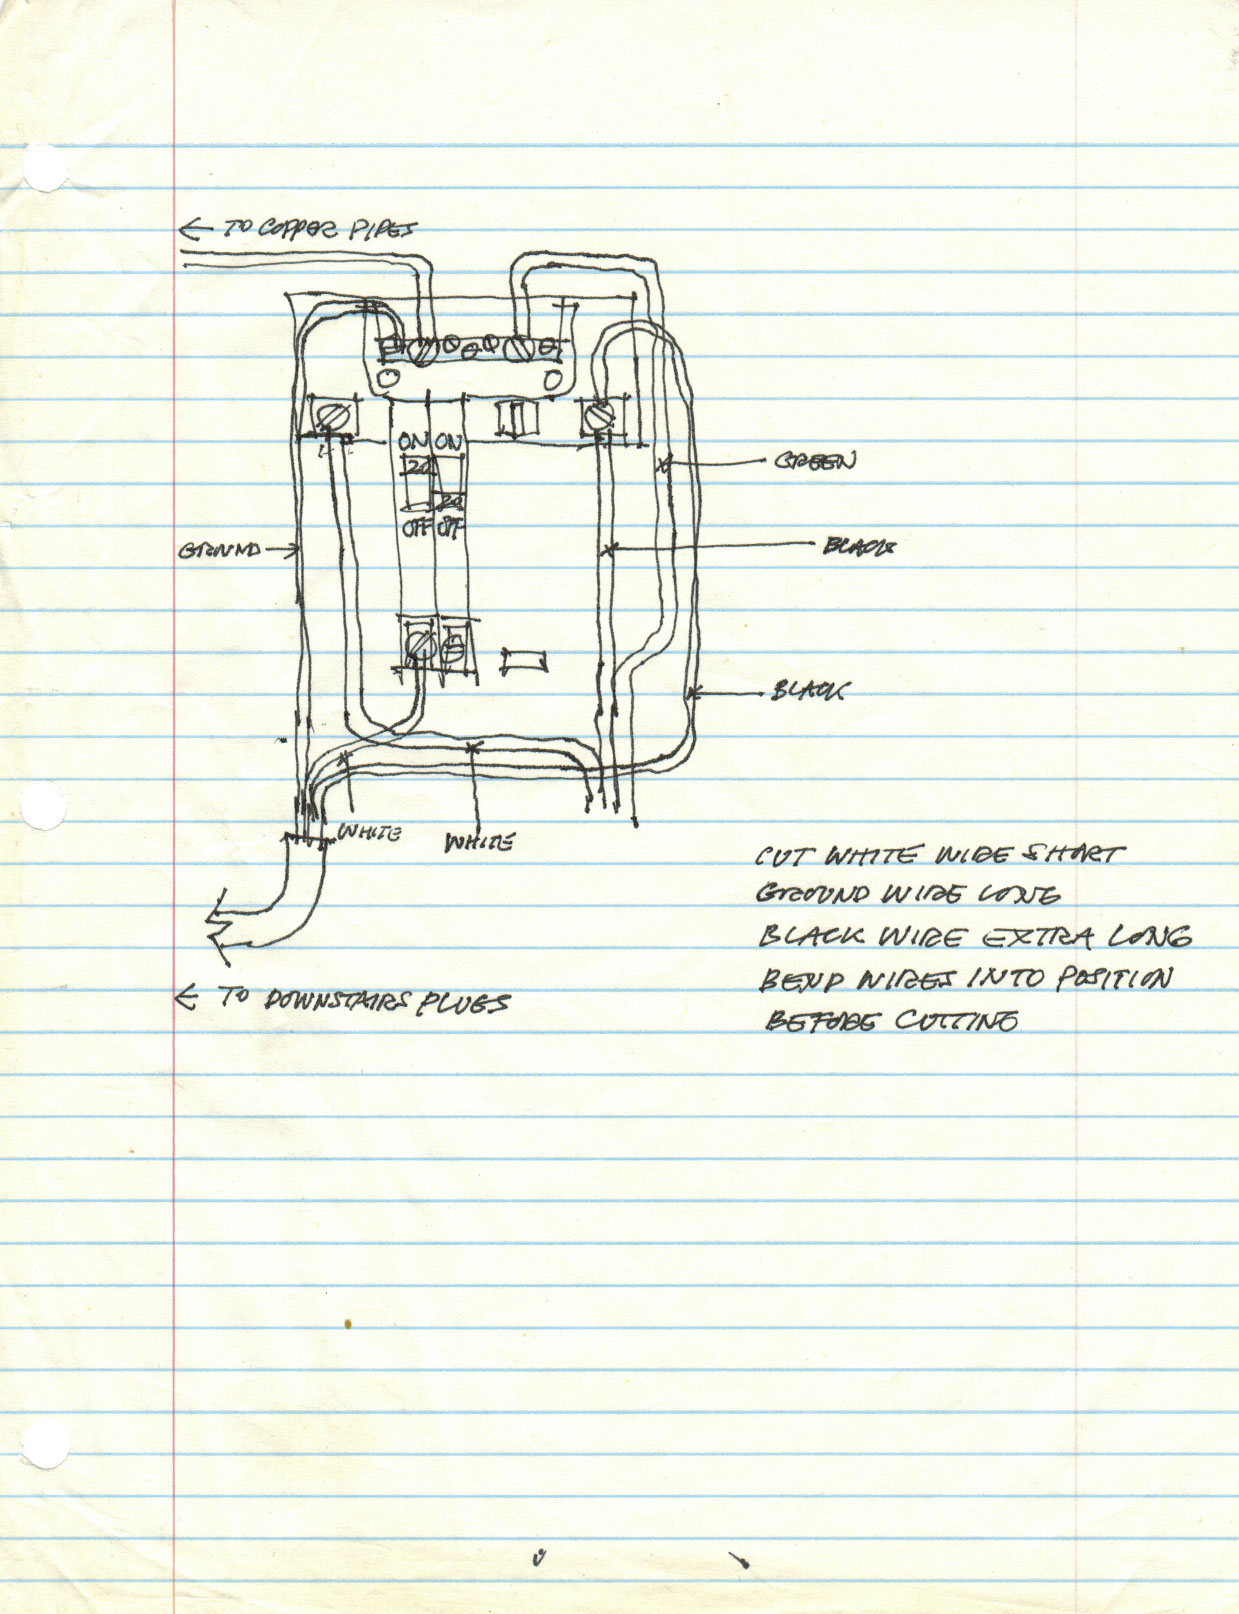 ← TO COPPER PIPES
ON ON
20
20
OFF OFF
GREEN
GROUND →
BLACK
BLACK
WHITE
WHITE
CUT WHITE WIRE SHORT
GROUND WIRE LONG
BLACK WIRE EXTRA LONG
BEND WIRES INTO POSITION
BEFORE CUTTING
← TO DOWNSTAIRS PLUGS